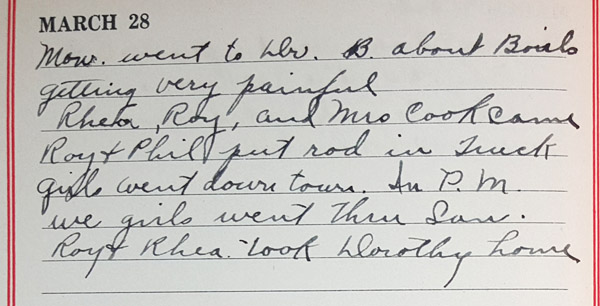 MARCH 28
Mon. went to Dr. B. about Boils
getting very painful
Rhea, Roy, and Mrs Cook came
Roy & Phil put rod in Truck
girls went down town. In P.M.
we girls went thru San.
Roy & Rhea took Dorothy home